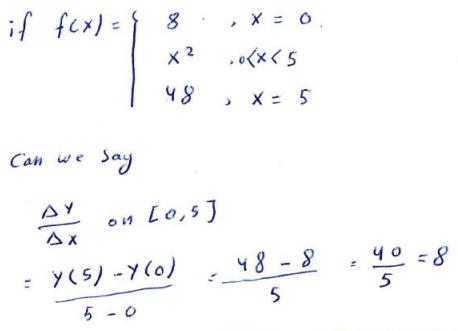 if f(x) = { 8 , x = 0
x² , 0<x<5
48 , x = 5
Can we say
ΔY/ΔX on [0,5]
= Y(5) - Y(0) / 5 - 0 = 48 - 8 / 5 = 40/5 = 8